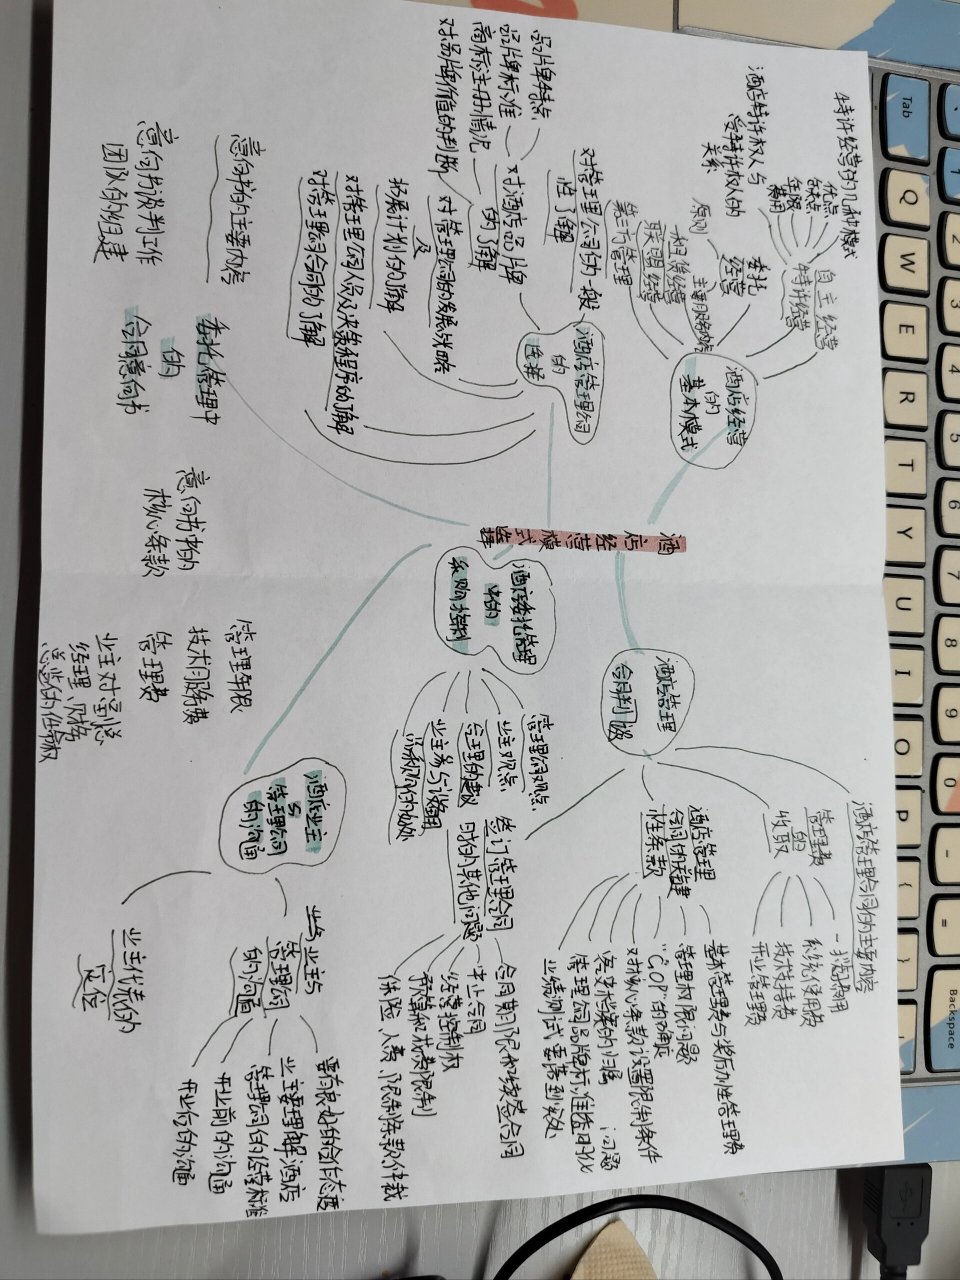 酒店经营模式选择
酒店经营
的
基本模式
自主经营
特许经营
特许经营的几种模式
优点
缺点
年限
费用
委托
经营
原则
主要服务内容
酒店特许权人与
受特许权人的
关系
租赁经营
联盟经营
第三方管理
酒店管理公司
的
选择
对管理公司的一般
性了解
对酒店品牌
的了解
品牌特点
品牌标准
商标注册情况
对品牌价值的判断
对管理公司的发展战略
及
拓展计划的了解
对管理公司人员及决策程序的了解
对管理公司合同的了解
委托管理中
的
合同意向书
意向书的主要内容
意向书谈判工作
团队的组建
意向书中的
核心条款
管理年限
技术服务费
管理费
业主对副总
经理、财务
总监的任命权
酒店管理
合同谈判
酒店管理合同的主要内容
管理费
的
收取
系统使用费
技术支持费
开业管理费
酒店管理
合同的关键
性条款
基本管理费与奖励性管理费
管理权限问题
"GOP"的确定
对核心条款设置限制条件
客史档案的归属 问题
业绩测试要落到实处
签订管理合同
时的其他问题
合同期限和续签合同
中止合同
经营控制权
预算和花费限制
酒店委托管理
中的
采购控制
管理公司观点
业主观点
合理的建议
酒店业主
与
管理公司
的沟通
业主与
管理公司
的沟通
要有良好的合作态度
业主要理解酒店
管理公司的经营标准
开业前的沟通
开业后的沟通
业主代表的
定位
Tab
Q
W
E
R
T
Y
U
I
O
P
{
}
1
2
3
4
5
6
7
8
9
0
-
=
Backspace